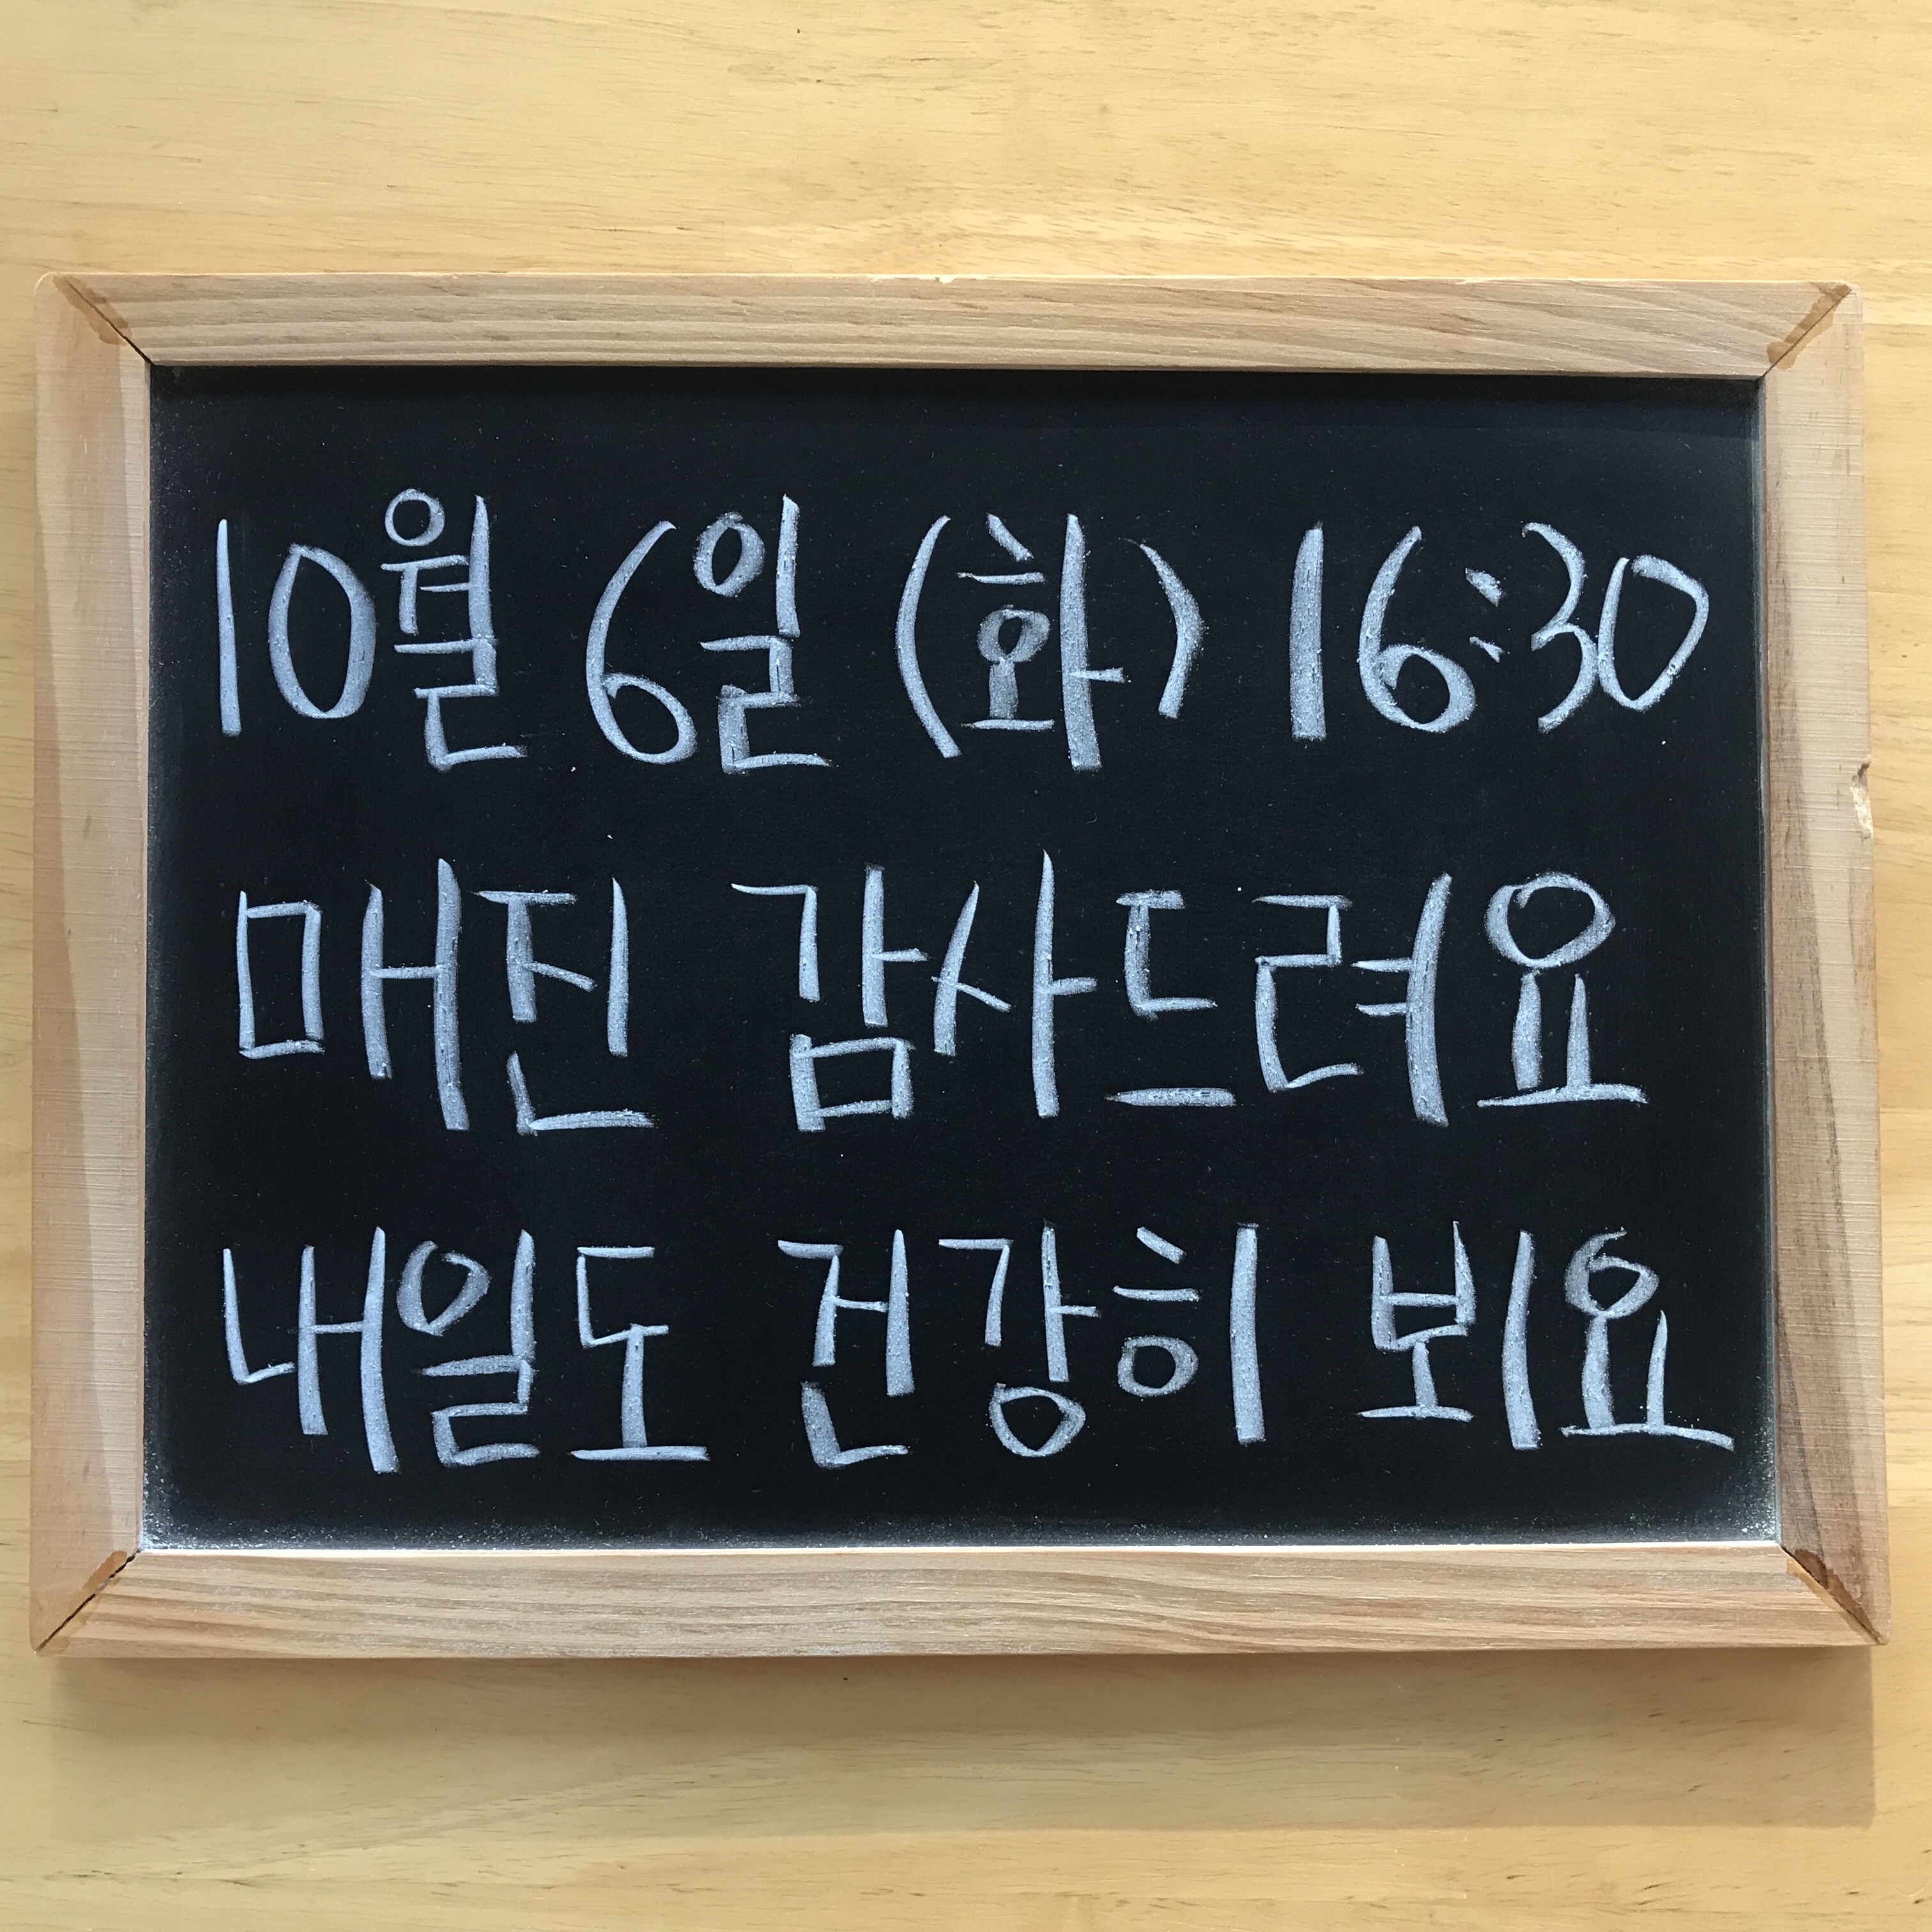 10월 6일 (화) 16:30
매진 감사드려요
내일도 건강히 뵈요